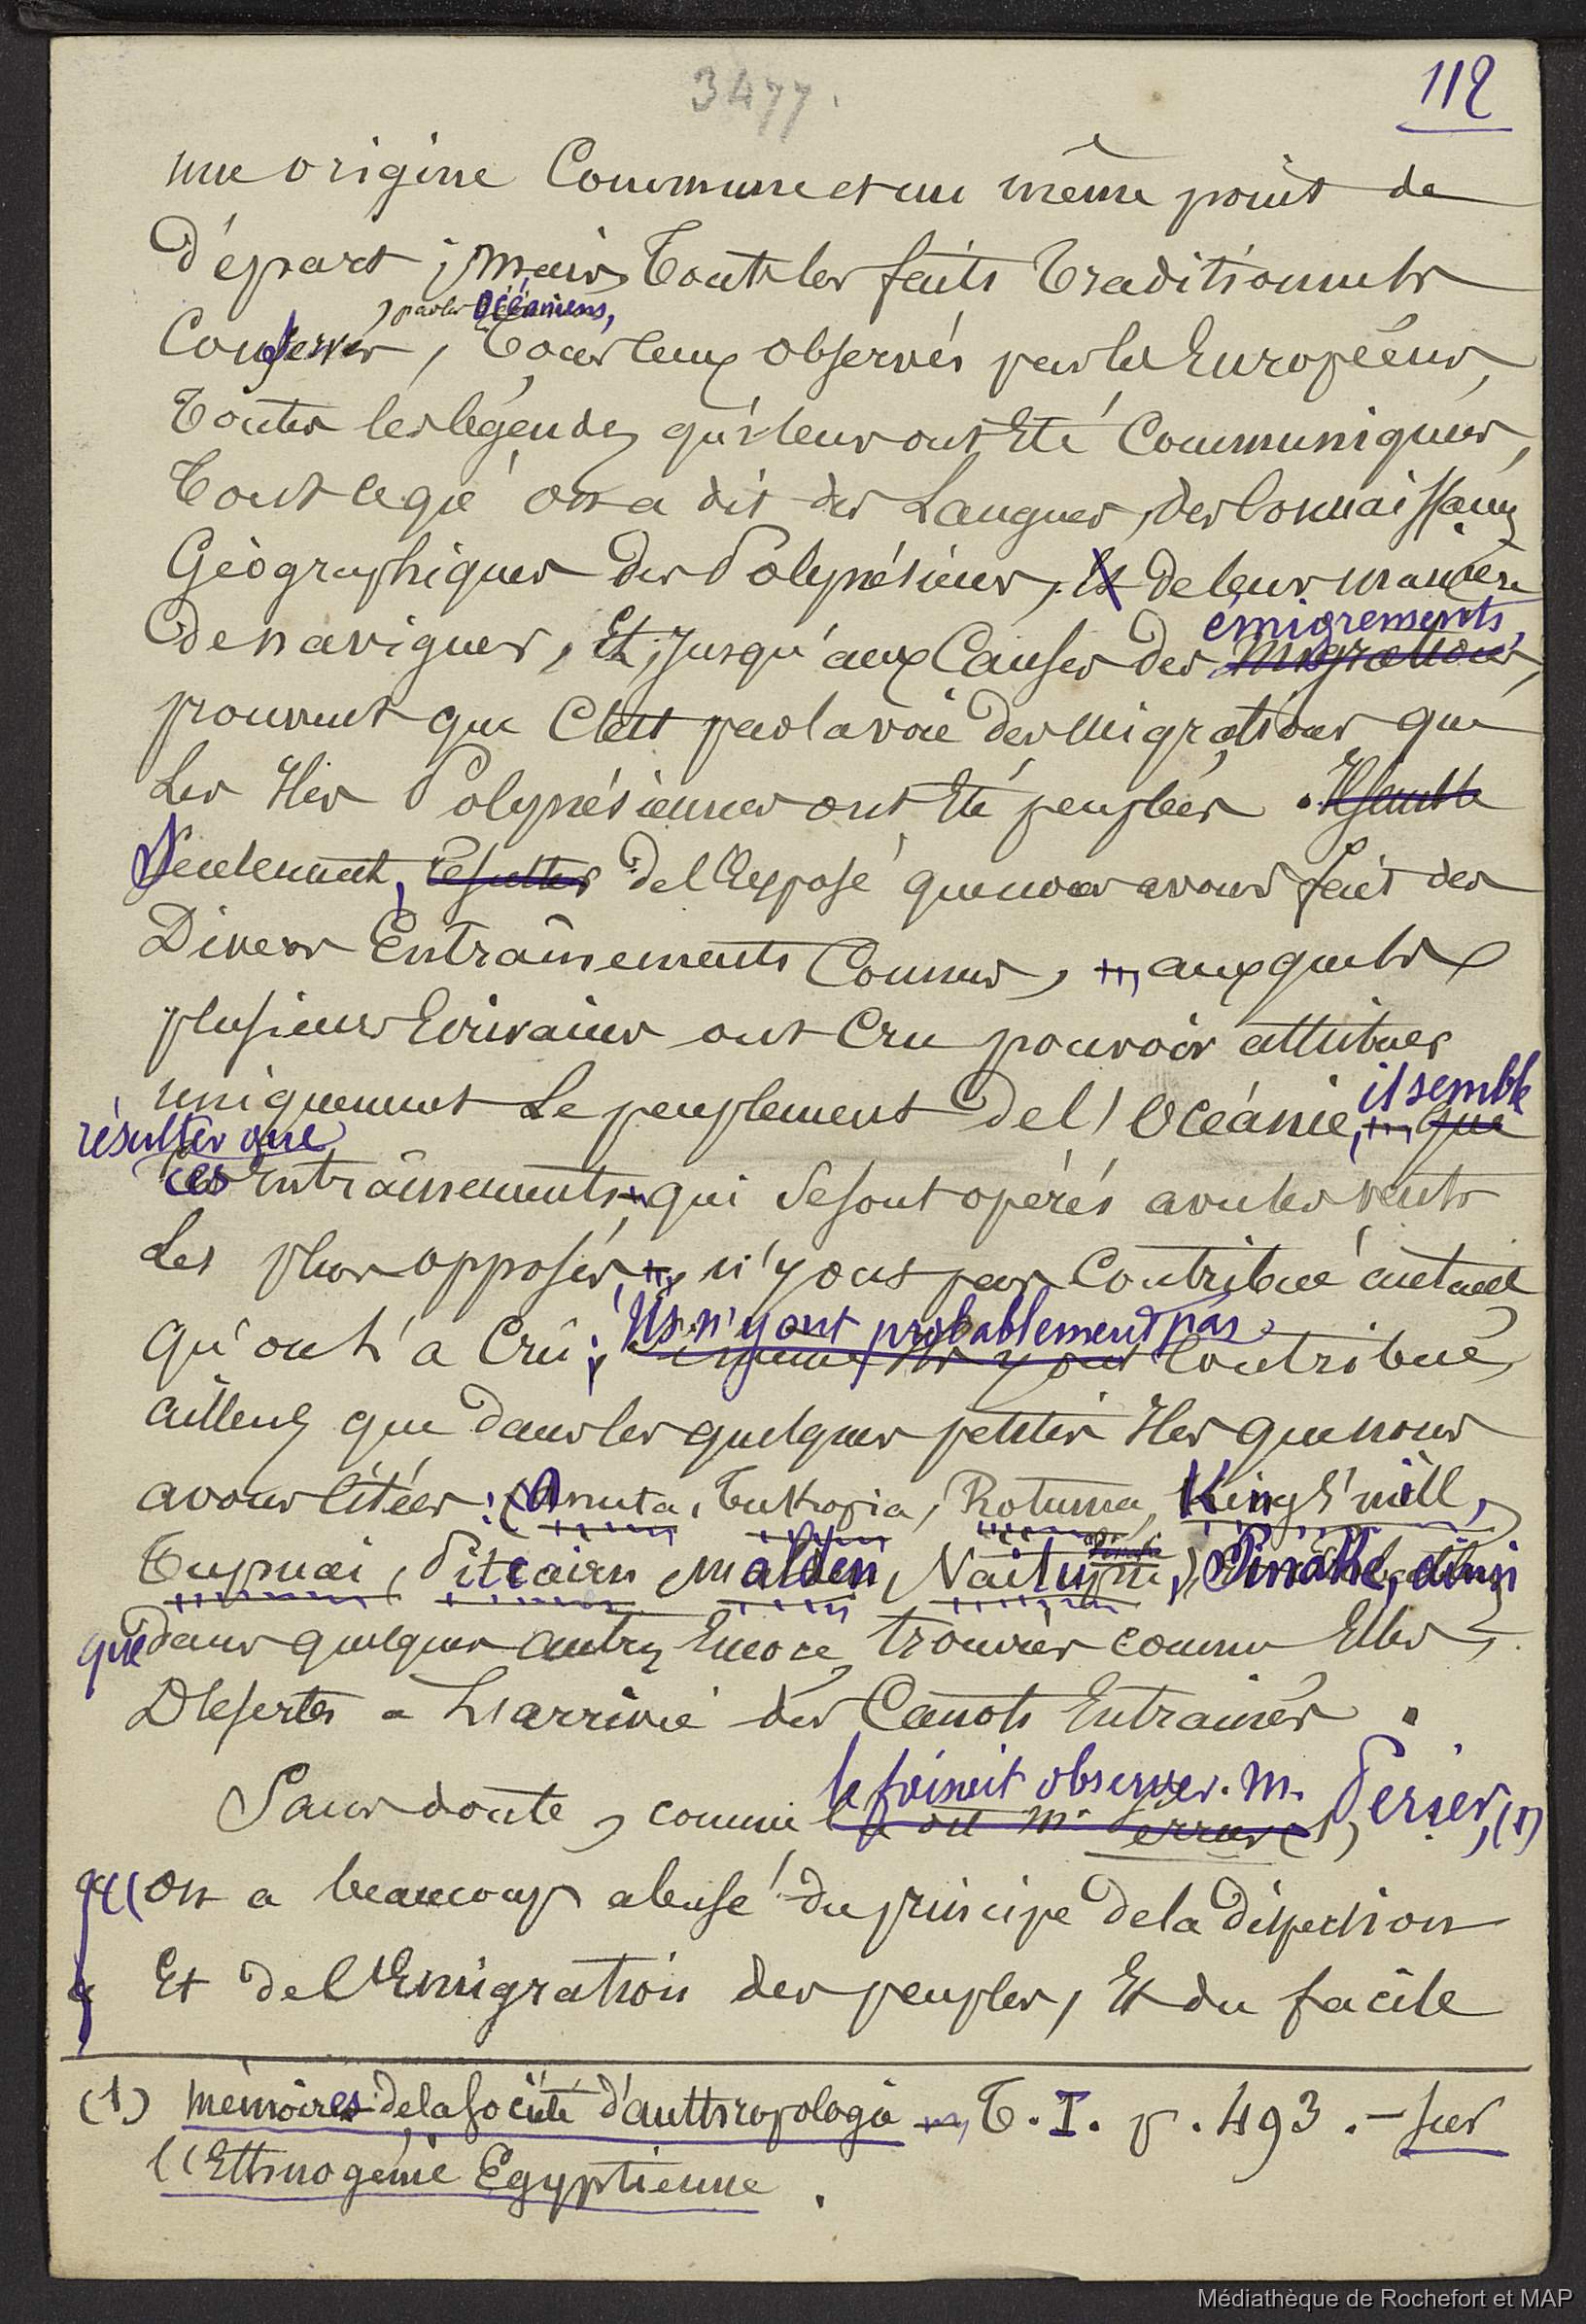 3477.
112
une origine Commune et un même point de
Départ ; mais, tout les faits traditionnels
, par les Océaniens,
Conservés, tous ceux observés par les Européens,
toutes les légendes qui leur ont été Communiquées,
tout ce qu'on a dit des Langues, des Connaissances
Géographiques des Polynésiens, et de leur manière
émigrements,
de naviguer, et, jusqu'aux Causes des migrations,
prouvent que C'est par la voie des migrations que
Les Iles Polynésiennes ont été peuplées. Il semble
Seulement, résulter de l'Exposé que nous avons fait des
Divers Entraînements Connus, auxquels
plusieurs Ecrivains ont Cru pouvoir attribuer
il semble
uniquement Le peuplement de l'Océanie, que
résulter que
ces Entraînements, qui se sont opérés avec les vents
Les plus opposés, n'y ont pas Contribué autant
Ils n'y ont probablement pas
qu'on l'a Crû ; ils y ont Contribué,
ailleurs que dans les quelques petites Iles que nous
avons Citées : (Anuta, Tukopia, Rotuma, King's'mill,
Tupuai, Pitcairn, Malden, Vaitupu), Pinakie, ainsi
que dans quelques autres Encore, trouvées comme Elles,
Désertes à L'arrivée des Canots Entrainés.
le faisait observer M. Perier, (1)
Sans doute, comme l'a dit Mr. Perrier (1),
on a beaucoup abusé du principe de la dispersion
Et de l'Emigration des peuples, Et du facile
(1) Mémoires de la Société d'anthropologie T. I. p. 493. - Sur
l'Ethnogénie Egyptienne.
Médiathèque de Rochefort et MAP